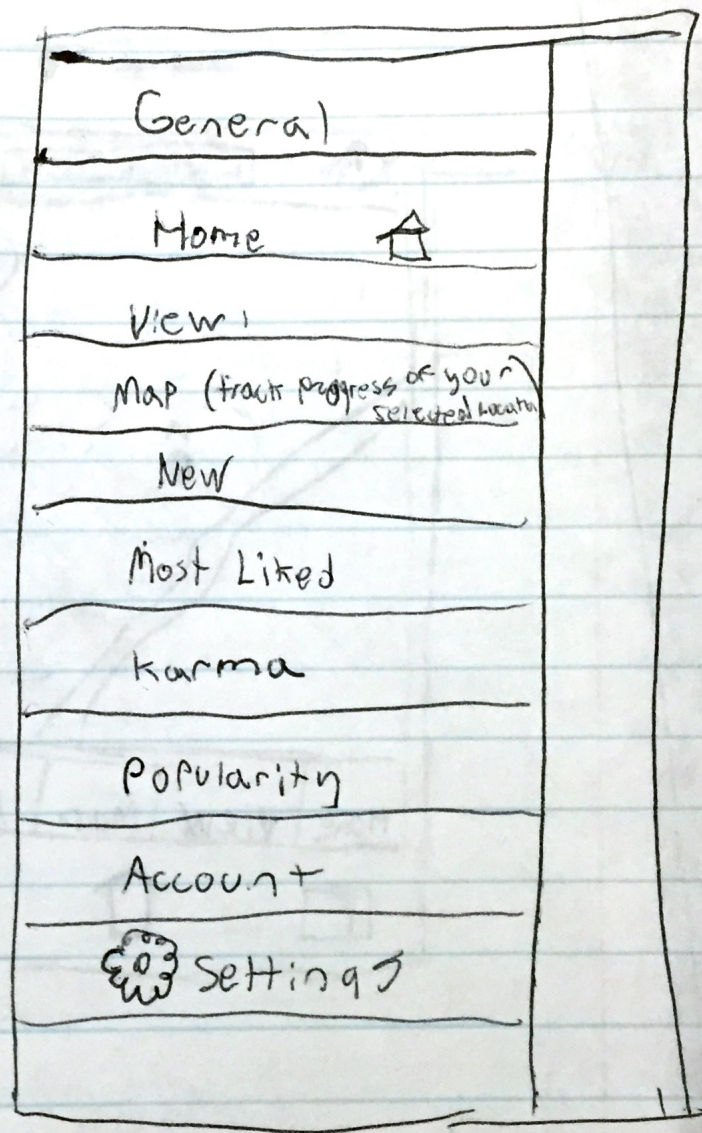 General
Home
View
Map (track progress of your
selected
New
Most Liked
Karma
Popularity
Account
Settings